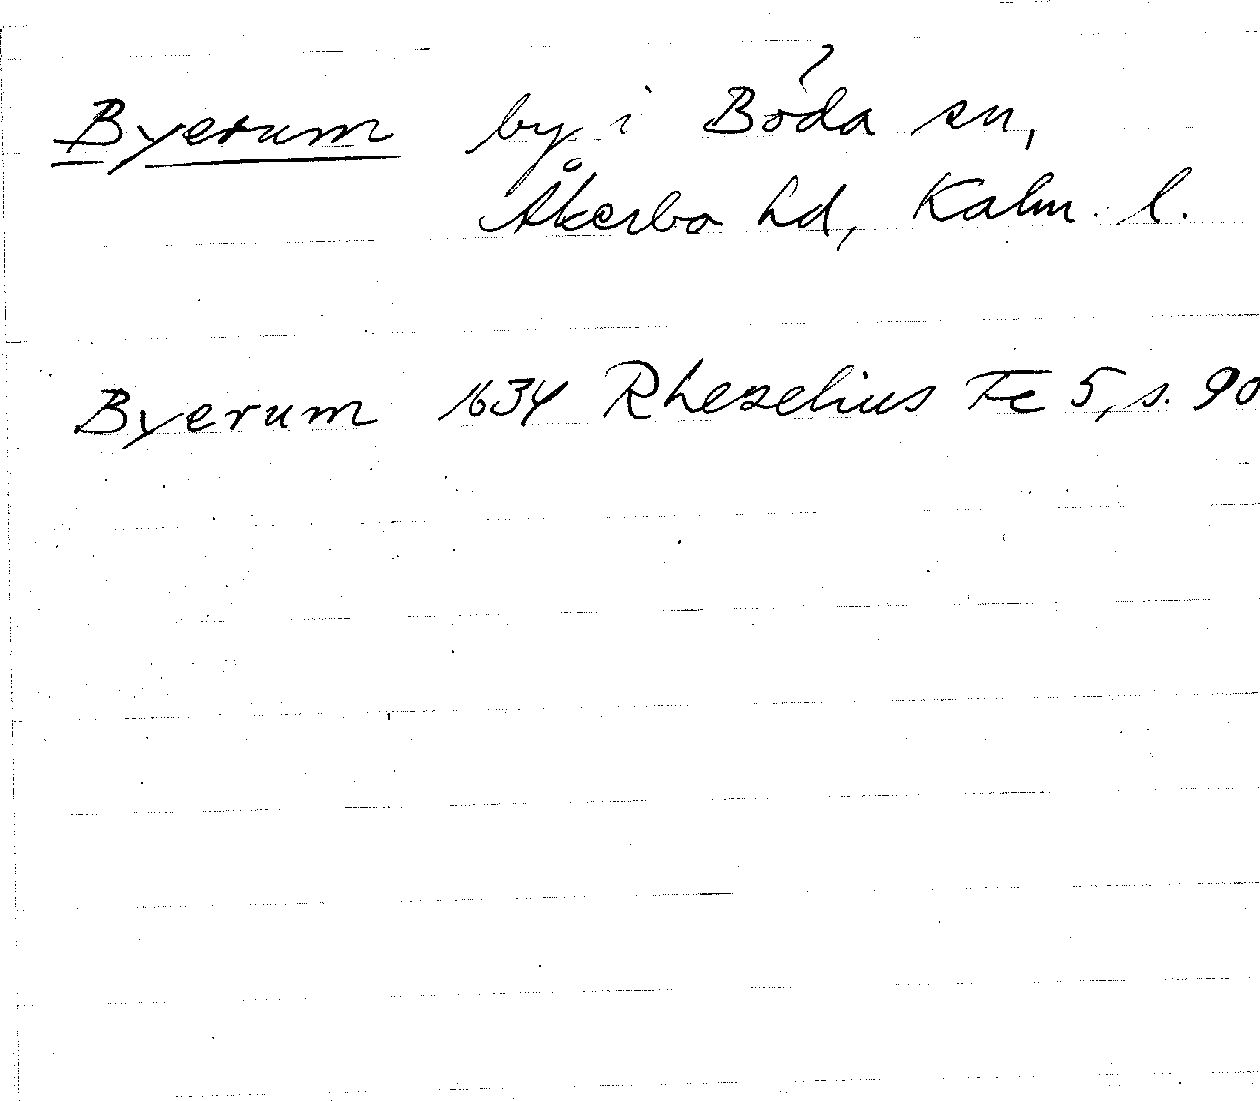 Byerum by i Böda sn,
Åkerbo hd, Kalm. l.
Byerum 1634 Rhezelius Fc 5, s. 90